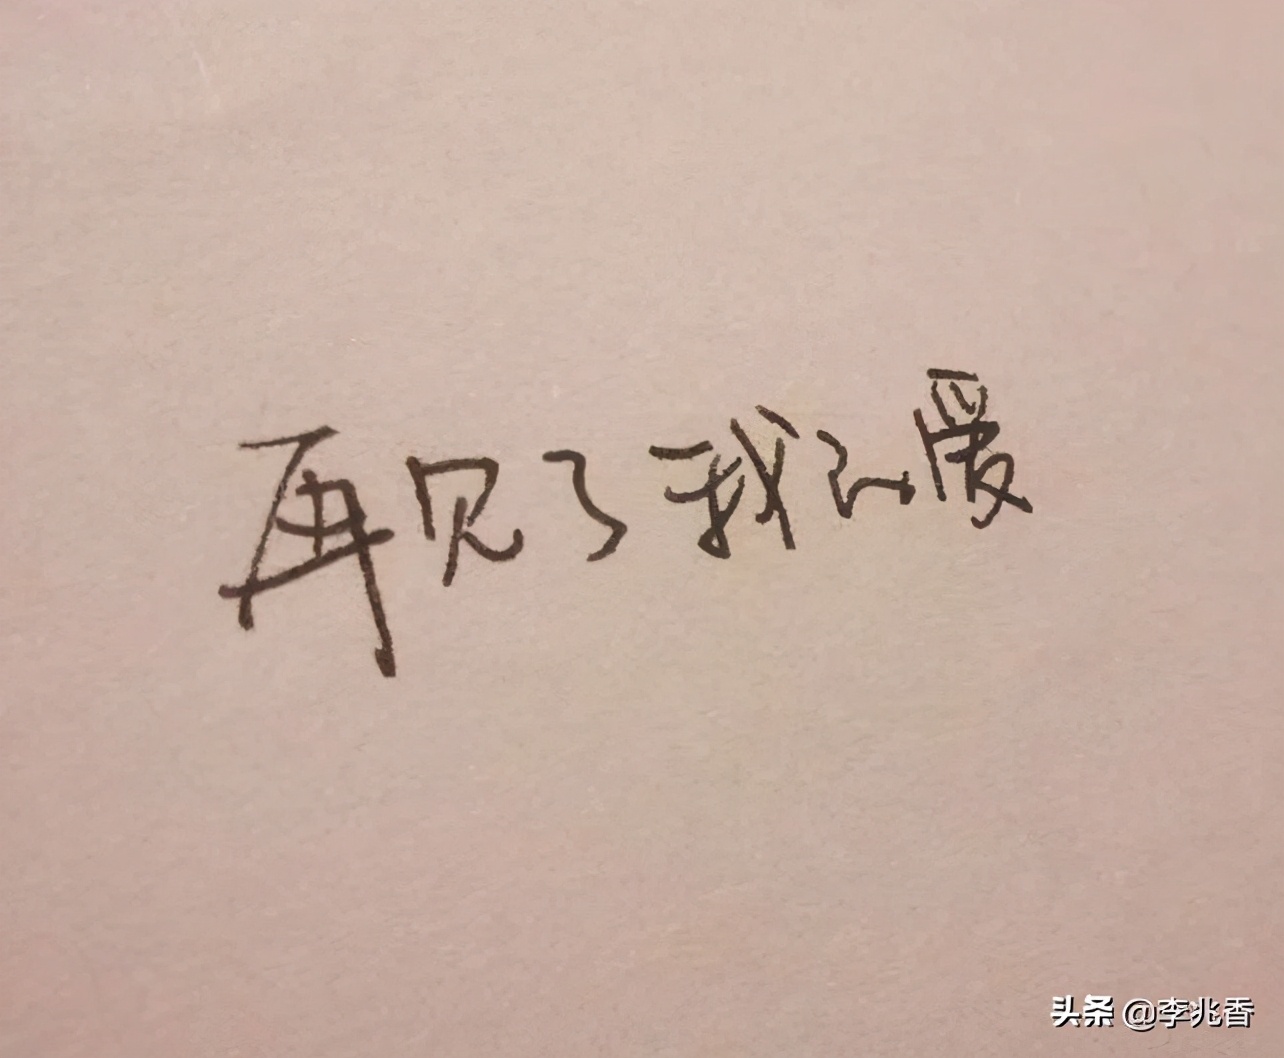 再见了我的爱
头条 @李兆香